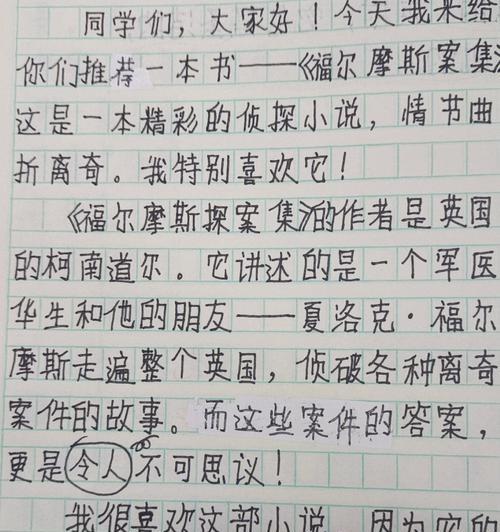 同学们，大家好！今天我来给
你们推荐一本书——《福尔摩斯案集》
这是一本精彩的侦探小说，情节曲
折离奇。我特别喜欢它！
《福尔摩斯探案集》的作者是英国
的柯南道尔。它讲述的是一个军医
华生和他的朋友——夏洛克·福尔
摩斯走遍整个英国，侦破各种离奇
案件的故事。而这些案件的答案，
更是令人不可思议！
我很喜欢这部小说，因为它的